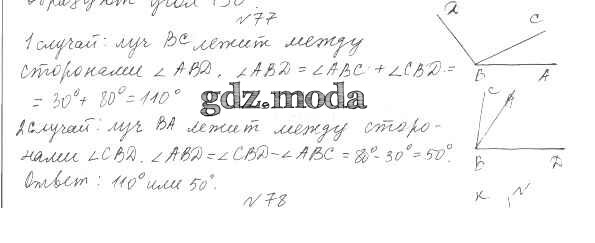 образуют угол 130°.
№77
1 случай: луч BC лежит между
D
C
B
A
сторонами ∠ABD. ∠ABD = ∠ABC + ∠CBD =
= 30° + 80° = 110°
gdz.moda
2 случай: луч BA лежит между сторо-
C
A
B
D
нами ∠CBD. ∠ABD = ∠CBD - ∠ABC = 80° - 30° = 50°.
Ответ: 110° или 50°.
№78
K
N